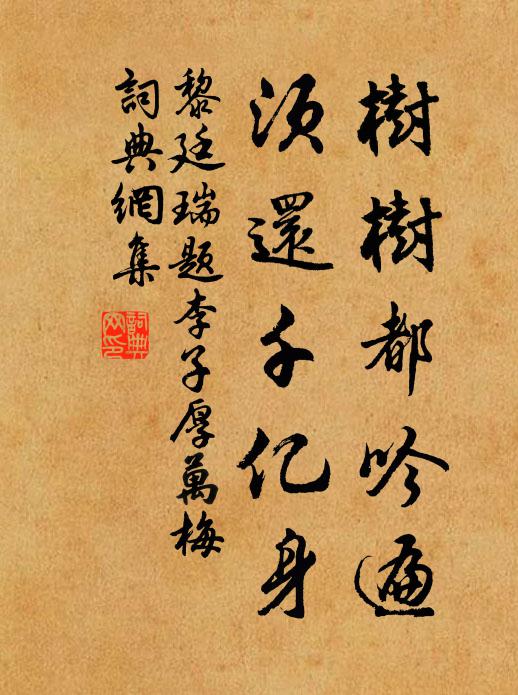 樹樹都吟遍
須還千亿身
黎廷瑞題李子厚萬梅
詞典網集
詞典网印